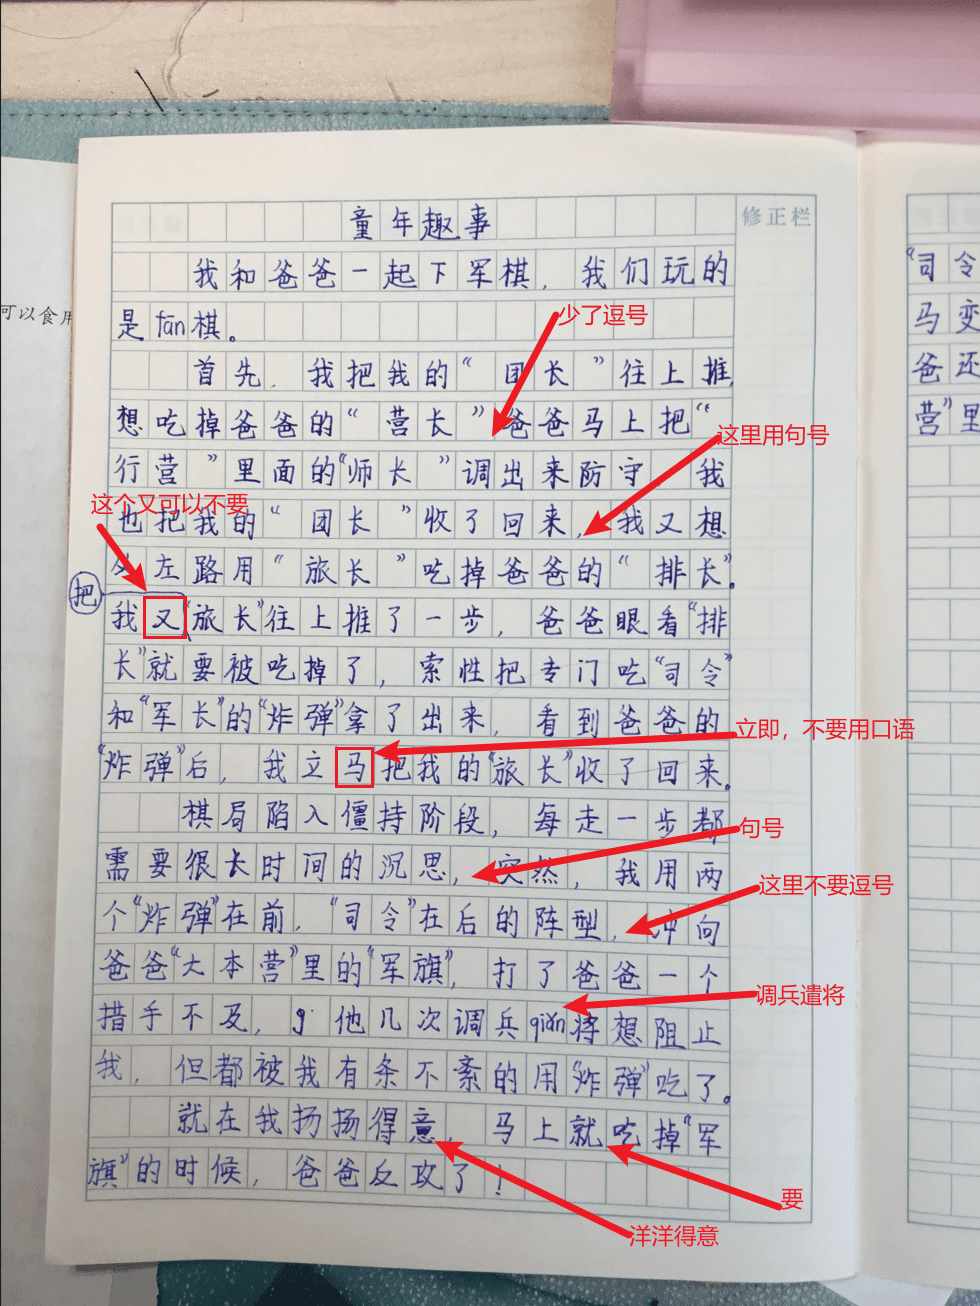 童年趣事
修正栏
我和爸爸一起下军棋，我们玩的
是fan棋。
可以食用
少了逗号
首先，我把我的“团长”往上推，
想吃掉爸爸的“营长”爸爸马上把“
这里用句号
行营”里面的“师长”调出来防守 我
这个又可以不要
也把我的“团长”收了回来，我又想
从左路用“旅长”吃掉爸爸的“排长”。
把
我又“旅长”往上推了一步，爸爸眼看“排
长”就要被吃掉了，索性把专门吃“司令”
和“军长”的“炸弹”拿了出来，看到爸爸的
立即，不要用口语
“炸弹”后，我立马把我的“旅长”收了回来。
棋局陷入僵持阶段，每走一步都
句号
需要很长时间的沉思，突然，我用两
这里不要逗号
个“炸弹”在前，“司令”在后的阵型，冲向
爸爸“大本营”里的“军旗”，打了爸爸一个
调兵遣将
措手不及，他几次调兵qiǎn将想阻止
我，但都被我有条不紊的用“炸弹”吃了。
就在我扬扬得意，马上就吃掉“军
旗”的时候，爸爸反攻了！
要
洋洋得意
“司令
马变
爸还
营”里